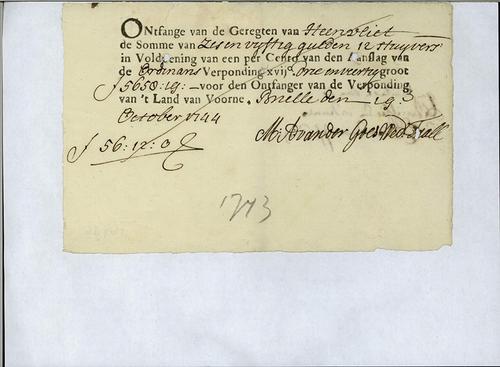 ONtfange van de Geregten van Heenvliet
de Somme van Zes en vyftig gulden 12 stuyvers
in Voldoening van een per Cento van den Aanslag van
de Ordinaris Verponding xvijc. een en veertig groot
ƒ 5658:19:— voor den Ontfanger van de Verponding
van 't Land van Voorne. Brielle den 19e
October 1744
M: A vander Goes Wed
ƒ 56:12:0
1743